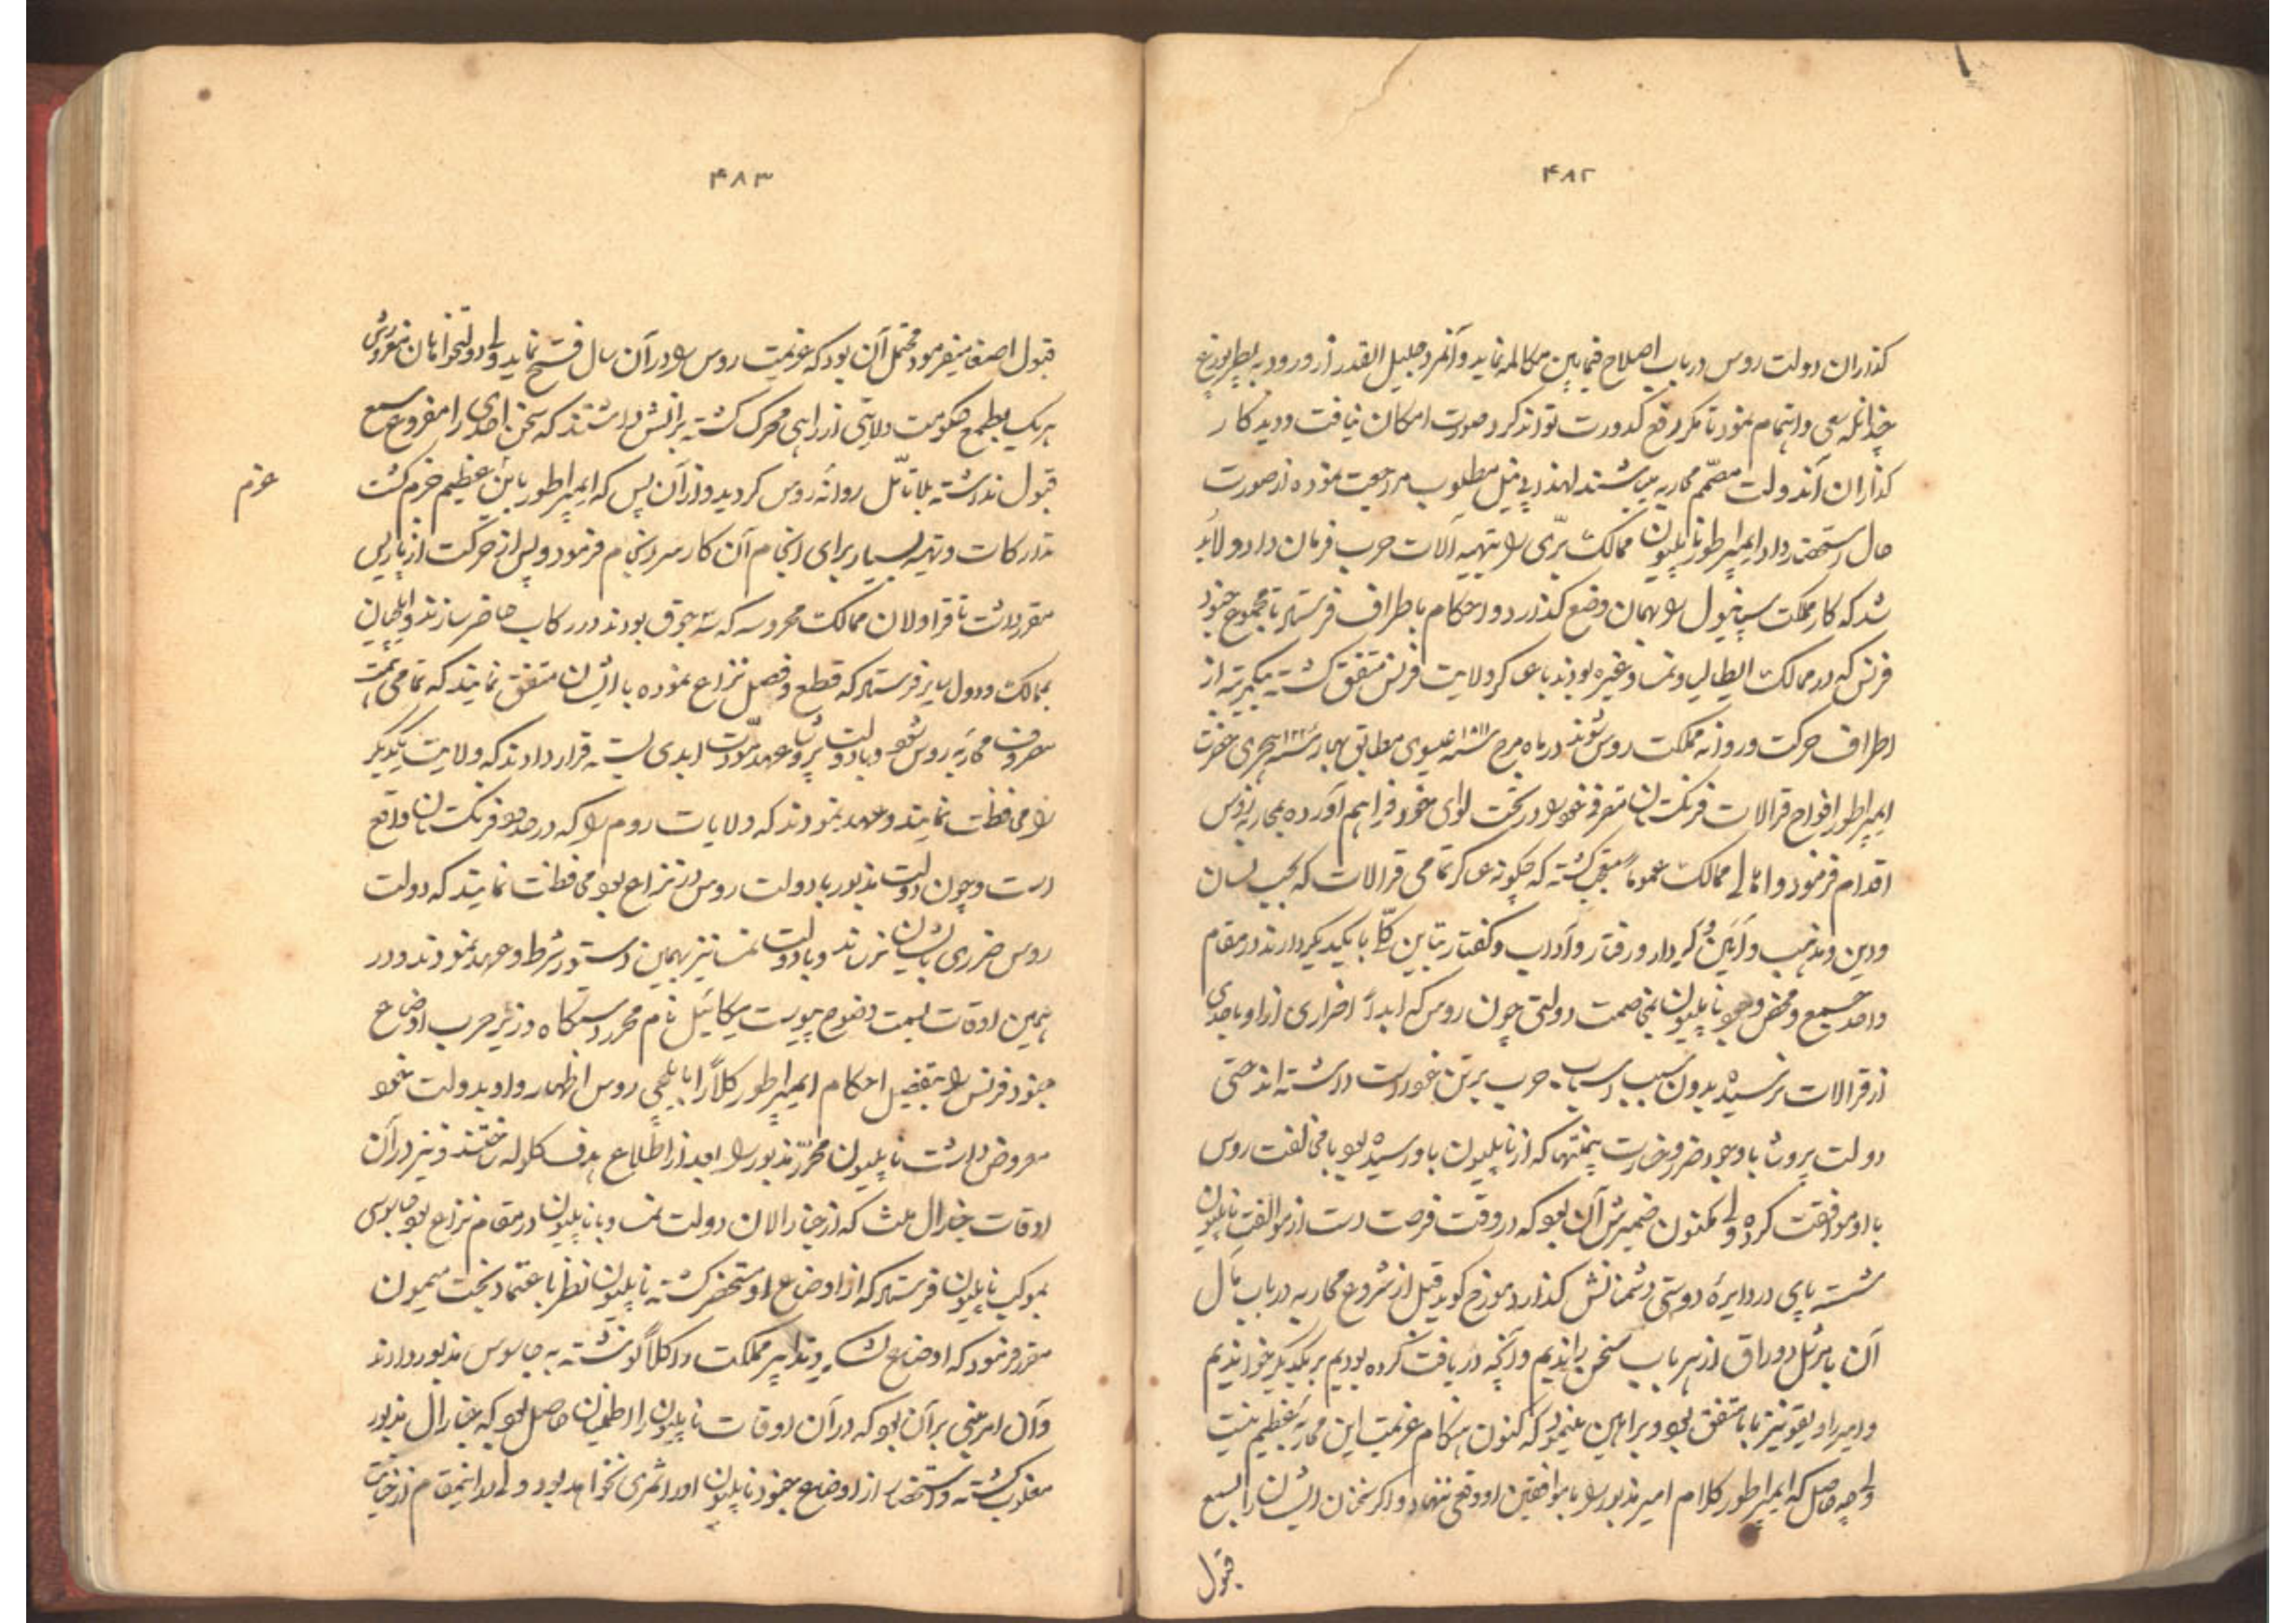 ۴۸۲
کذاران دولت روس در باب اصلاح فیمابین مکالمه نماید و آنمرد جلیل القدر از ورود به پطربورغ
چندانکه سعی و اهتمام نمود تا مکر رفع کدورت تواند کرد صورت امکان نیافت و دید کار
کذاران آندولت مصمّم محاربه میباشند لهذا بی نیل مطلوب مراجعت نموده از صورت
حال استحضار داد ایمپراطور ناپلیون ممالک برّی را بتهیه آلات حرب فرمان داد و لابد
شد که کار مملکت سپانیول را بهمان وضع کذارد و احکام باطراف فرستاد تا مجموع جنود
فرنس که در ممالک ایطالیا و نمسا و غیره بودند با عساکر ولایت فرنس متفق کشته یکمرتبه از
اطراف حرکت و روانه مملکت روس شوند در ماه مرج سنه ۱۸۱۱ عیسوی مطابق بهار سنه ۱۲۲ هجری حضرت
ایمپراطور افواج قرالات فرنکستان متفرقه را در تحت لوای خود فراهم آورده بمحاربه روس
اقدام فرمود و اهالی ممالک عموماً متعجب کشته که چکونه عساکر تمامی قرالات که بحسب لسان
و دین و مذهب و آیین و کردار و رفتار و آداب و کفتار تباین کلّی با یکدیکر دارند در مقام
واحد جمیع و محض وجود ناپلیون بمخاصمت دولتی چون روس که ابداً اضراری از او باحدی
از قرالات نرسیده بدون سبب اسباب حرب بر تن خود راست داشته اند حتی
دولت پروشا با وجود ضرر و خسارت بی منتها که از ناپلیون باو رسیده بود با مخالفت روس
با او موافقت کرده ولی مکنون ضمیرش آن بود که در وقت فرصت دست از موالفت ناپلیون
شسته پای در دایرۀ دوستی دشمنانش کذارد مورخ کوید قبل از شروع محاربه در باب مآل
آن با مرشل دوراق از هر باب سخن راندیم و آنچه دریافت کرده بودیم بر یکدیکر خواندیم
و امیر اویقو نیز با ما متفق بود و براهین مینمود که کنون هنکام عزیمت این محاربه عظیم نیست
ولی چه حاصل که ایمپراطور کلام امیر مذبور را با موافقین او وقعی ننهاد و اکر سخنان ایشان را بسمع
قبول
۴۸۳
قبول اصغا میفرمود محتمل آن بود که عزیمت روس را در آن سال فسخ نماید ولی دولتخواهان مغروش
هر یک بطمع حکومت ولایتی از راهی محرک کشته برانش داشتند که سخن احدی را مفروع سمع
قبول نداشته بلا تأمّل روانه روس کردید و از آن پس که ایمپراطور باین عظیم جزم کشت
عزم
تدارکات و تهیه بسیار برای انجام آن کار سرانجام فرمود و پس از حرکت از پاریس
مقرر داشت تا قراولان ممالک محروسه که سه جوق بودند در رکاب حاضر سازند و ایلچیان
بممالک و دول سایر فرستاد که قطع و فصل نزاع نموده با ایشان متفق نمایند که تمامی همت
مصروف محاربه روس شود و با دولت پروشا عهد مودّت ابدی بسته قرار دادند که ولایت یکدیکر
را محافظت نمایند و عهد نمودند که ولایات روم را که در حدود فرنکستان واقع
است و چون دولت مذبور با دولت روس در نزاع بود محافظت نمایند که دولت
روس ضرری بایشان نرساند و با دولت نمسا نیز بهمین دستور شرط و عهد نمودند و در
همین اوقات بسمت وضوح پیوست میکائیل نام محرر دستکاه وزیر حرب اوضاع
جنود فرنس را بتفصیل احکام ایمپراطور کلاً را بایلچی روس اظهار و او بدولت خود
معروض داشت ناپلیون محرّر مذبور را بعد از اطلاع هدف کلوله ساختند و نیز در آن
اوقات جنرال ملث که از جنارالان دولت نمسا و با ناپلیون در مقام نزاع بود جاسوسی
بموکب ناپلیون فرستاد که از اوضاع او مستحضر کشته ناپلیون نظر باعتماد بخت میمون
مقرر فرمود که اوضاع لشکر و تدابیر مملکت را کلاً نوشته به جاسوس مذبور دادند
و آن امر مبنی بر آن بود که در آن اوقات ناپلیون را اطمینان حاصل بود که جنارال مذبور
مغلوب کشته و استحضار از اوضاع جنود ناپلیون او را ثمری نخواهد بود ولی در اینمقام از خیانت